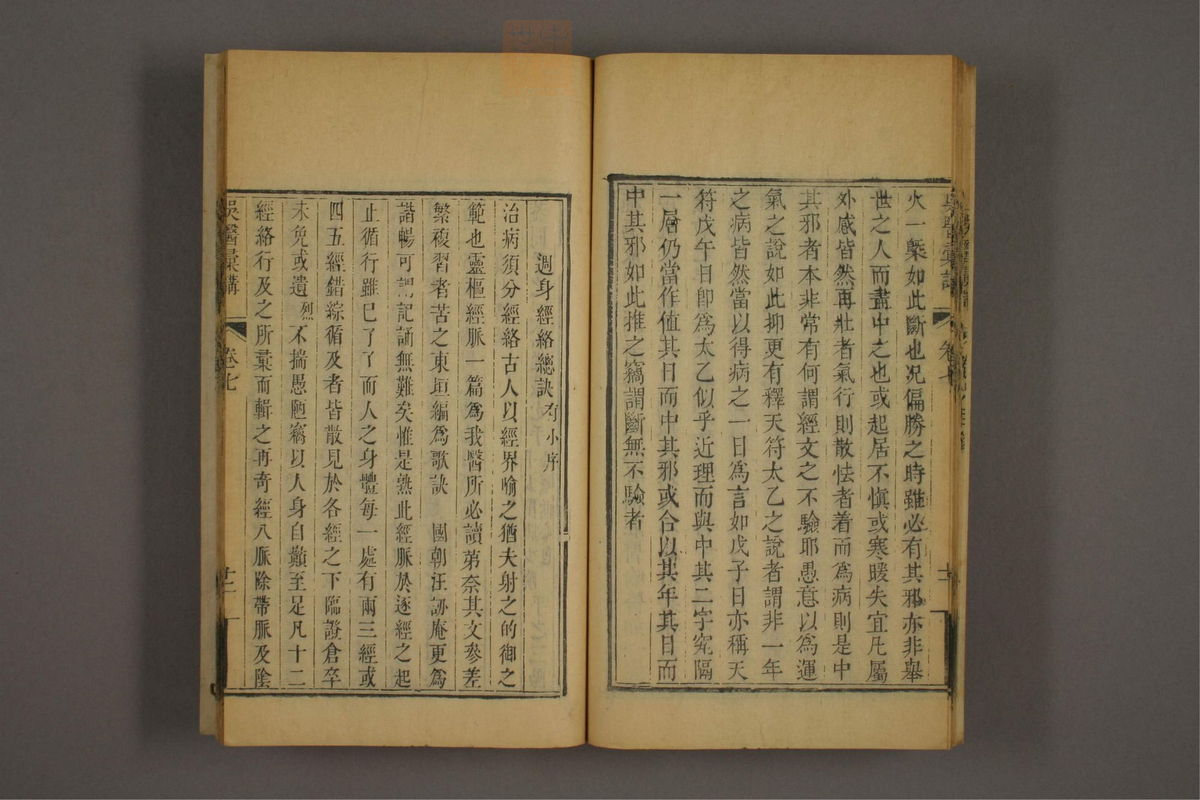 火一槩如此斷也况偏勝之時雖必有其邪亦非舉
世之人而盡中之也或起居不愼或寒暖失宜凡屬
外感皆然再壯者氣行則散怯者着而爲病則是中
其邪者本非常有何謂經文之不驗耶愚意以爲運
氣之說如此抑更有釋天符太乙之說者謂非一年
之病皆然當以得病之一日爲言如戊子日亦稱天
符戊午日卽爲太乙似乎近理而與中其二字究隔
一層仍當作值其日而中其邪或合以其年其日而
中其邪如此推之竊謂斷無不驗者
週身經絡總訣有小序
治病須分經絡古人以經界喻之猶夫射之的御之
範也靈樞經脈一篇爲我醫所必讀第奈其文參差
繁複習者苦之東垣編爲歌訣 國朝汪訒庵更爲
諧暢可謂記誦無難矣惟是熟此經脈於逐經之起
止循行雖已了了而人之身軆每一處有兩三經或
四五經錯綜循及者皆散見於各經之下臨證倉卒
未免或遺烈不揣愚陋竊以人身自顚至足凡十二
經絡行及之所彙而輯之再奇經八脈除帶脈及陰
吳醫彙講
卷七
十二